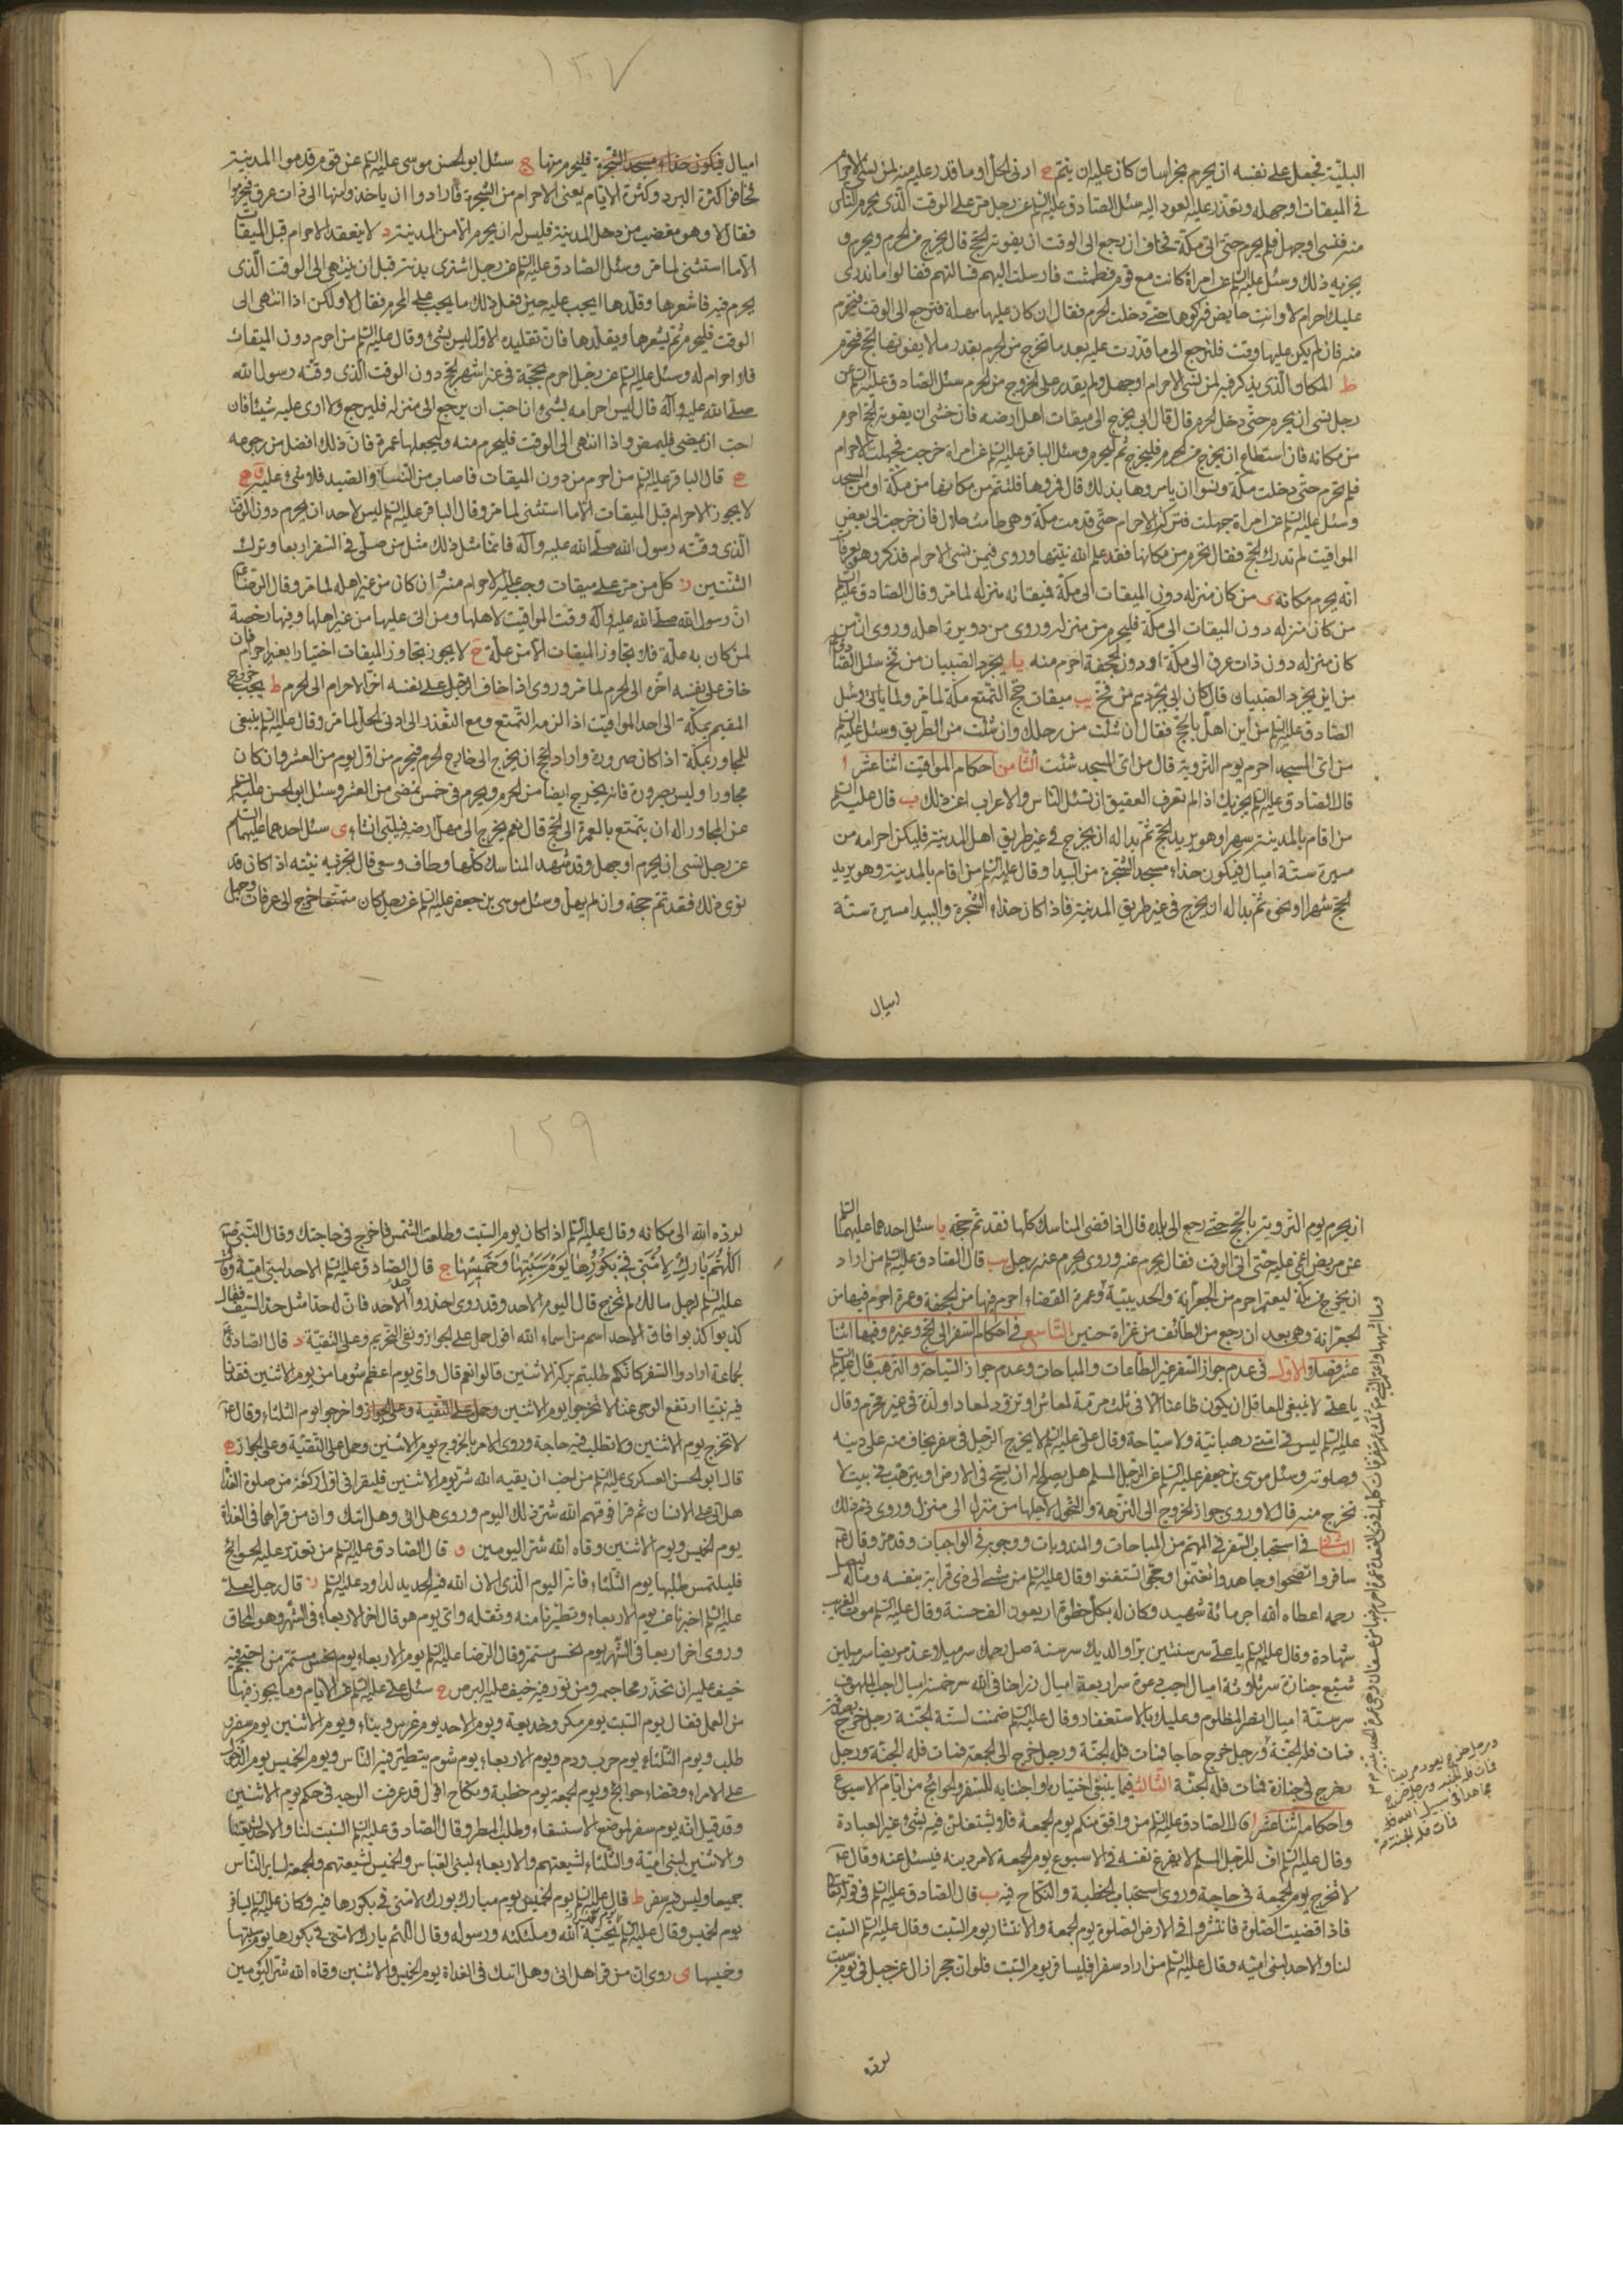 البليّة فجعل على نفسه ان يحرم بخراسان كان عليه ان يتم ح ادنى الحل او ما قدر عليه منه لمن نسى الاحرام
فى الميقات او جهله وتعذر عليه العود اليه سئل الصادق عليه السلم عن رجل مر على الوقت الذى يحرم الناس
منه فنسى او جهل فلم يحرم حتى اتى مكة فخاف ان رجع الى الوقت ان يفوته الحج قال يخرج من الحرم ويحرم و
يجزيه ذلك وسئل عليه السلم عن امراة كانت مع قوم فطمثت فارسلت اليهم فسالتهم فقالوا ما ندرى
عليك احرام ام لا وانت حايض فتركوها حتى دخلت الحرم فقال ان كان عليها مهلة فترجع الى الوقت فتحرم
منه فان لم يكن عليها وقت فلترجع الى ما قدرت عليه بعد ما تخرج من الحرم بقدر ما لا يفوتها الحج فتحرم
ط المكان الذى يذكر فيه لمن نسى الاحرام او جهل ولم يقدر على الخروج من الحرم سئل الصادق عليه السلم عن
رجل نسى ان يحرم حتى دخل الحرم قال قال ابى يخرج الى ميقات اهل ارضه فان خشى ان يفوته الحج احرم
من مكانه فان استطاع ان يخرج من الحرم فليخرج ثم ليحرم وسئل الباقر عليه السلم عن امراة خرجت فجهلت الاحرام
فلم تحرم حتى دخلت مكة ونسوا ان يامروها بذلك قال فمروها فلتتم من مكانها من مكة او من المسجد
وسئل عليه السلم عن امراة جهلت فتركت الاحرام حتى قدمت مكة وهى طامث حلال فان خرجت الى بعض
المواقيت لم تدرك الحج فقال تحرم من مكانها فقد علم الله نيتها وروى فيمن نسى الاحرام فذكر وهو بعرفات
انه يحرم مكانه ى من كان منزله دون الميقات الى مكة فميقاته منزله لما مر وقال الصادق عليه السلم
من كان منزله دون الميقات الى مكة فليحرم من منزله وروى من دويرة اهله وروى ان من
كان منزله دون ذات عرق الى مكة او دون الجحفة احرم منه يا يجرد الصبيان من فخ سئل الصادق
من اين يجرد الصبيان قال كان ابى يجردهم من فخ يب ميقات حج التمتع مكة لما مر ولما ياتى وسئل
الصادق عليه السلم من اين اهل بالحج فقال ان شئت من رحلك وان شئت من الطريق وسئل عليه السلم
من اى المسجد احرم يوم التروية قال من اى المسجد شئت الثامن احكام المواقيت اثنا عشر ا
قال الصادق عليه السلم يجزيك اذا لم تعرف العقيق ان تسئل الناس والاعراب عن ذلك ب قال عليه السلم
من اقام بالمدينة شهرا وهو يريد الحج ثم بدا له ان يخرج فى غير طريق اهل المدينة فليكن احرامه من
مسيرة ستة اميال فيكون حذاء مسجد الشجرة من البيدا وقال عليه السلم من اقام بالمدينة وهو يريد
الحج شهرا او نحوه ثم بدا له ان يخرج فى غير طريق المدينة فاذا كان حذاء الشجرة والبيدا مسيرة ستة
اميال
١٢٠٧
اميال فيكون حذاء مسجد الشجرة فليحرم منها ج سئل ابو الحسن موسى عليه السلم عن قوم قدموا المدينة
فخافوا كثرة البرد وكثرة الايام يعنى الاحرام من الشجرة فارادوا ان ياخذوا منها الى ذات عرق فيحرموا
فقال لا وهو مغضب من دخل المدينة فليس له ان يحرم الا من المدينة د لا ينعقد الاحرام قبل الميقات
الا ما استثنى لما مر وسئل الصادق عليه السلم عن رجل اشترى بدنة قبل ان ينتهى الى الوقت الذى
يحرم فيه فاشعرها وقلدها ايجب عليه حين فعل ذلك ما يجب على المحرم فقال لا ولكن اذا انتهى الى
الوقت فليحرم ثم يشعرها ويقلدها فان تقليده الاول ليس بشئ وقال عليه السلم من احرم دون الميقات
فلا احرام له وسئل عليه السلم عن رجل احرم بحجة فى غير اشهر الحج دون الوقت الذى وقته رسول الله
صلى الله عليه وآله قال ليس احرامه بشئ ان احب ان يرجع الى منزله فليرجع ولا ارى عليه شيئا فان
احب ان يمضى فليمض واذا انتهى الى الوقت فليحرم منه وليجعلها عمرة فان ذلك افضل من رجوعه
ه قال الباقر عليه السلم من احرم من دون الميقات فاصاب من النساء والصيد فلا شئ عليه و
لا يجوز الاحرام قبل الميقات الا ما استثنى لما مر وقال الباقر عليه السلم ليس لاحد ان يحرم دون الوقت
الذى وقته رسول الله صلى الله عليه وآله فانما مثل ذلك مثل من صلى فى السفر اربعا وترك
الثنتين ز كل من مر على ميقات وجب عليه الاحرام منه وان كان من غير اهله لما مر وقال الرضا ع
ان رسول الله صلى الله عليه وآله وقت المواقيت لاهلها ومن اتى عليها من غير اهلها وفيها رخصة
لمن كان به علة فلا يجاوز الميقات الا من علة ح لا يجوز تجاوز الميقات اختيارا بغير احرام فان
خاف على نفسه اخره الى الحرم لما مر وروى اذا خاف الرجل على نفسه اخر الاحرام الى الحرم ط يجب خروج
المقيم بمكة الى احد المواقيت اذا لزمه التمتع ومع التعذر الى ادنى الحل لما مر وقال عليه السلم ينبغى
للمجاور بمكة اذا كان صرورة واراد الحج ان يخرج الى خارج الحرم فيحرم من اول يوم من العشر وان كان
مجاورا وليس بصرورة فانه يخرج ايضا من الحرم ويحرم فى خمس تمضى من العشر وسئل ابو الحسن عليه السلم
عن المجاور اله ان يتمتع بالعمرة الى الحج قال نعم يخرج الى مهل ارضه فيلبى ان شاء ى سئل احدهما عليهما السلم
عن رجل نسى ان يحرم او جهل وقد شهد المناسك كلها وطاف وسعى قال تجزيه نيته اذا كان قد
نوى ذلك فقد تم حجه وان لم يهل وسئل موسى بن جعفر عليه السلم عن رجل كان متمتعا خرج الى عرفات وجهل
ان يحرم يوم التروية بالحج حتى رجع الى بلده قال اذا قضى المناسك كلها فقد تم حجه يا سئل احدهما عليهما السلم
عن مريض اغمى عليه حتى اتى الوقت فقال يحرم عنه وروى يحرم عنه رجل يب قال الصادق عليه السلم من اراد
ان يخرج من مكة ليعتمر احرم من الجعرانة والحديبية وعمرة القضاء احرم فيها من الجحفة وعمرة احرم فيها من
الجعرانة وهى بعد ان رجع من الطائف من غزاة حنين التاسع فى احكام السفر الى الحج وغيره وفيها اثنا
عشر فصلا الاول فى عدم جواز السفر غير الطاعات والمباحات وعدم جواز السياحة والترهب قال عليه السلم
يا على لا ينبغى للعاقل ان يكون ظاعنا الا فى ثلث مرمة لمعاش او تزود لمعاد او لذة فى غير محرم وقال
عليه السلم ليس فى امتى رهبانية ولا سياحة وقال على عليه السلم لا يخرج الرجل فى سفر يخاف منه على دينه
وصلوته وسئل موسى بن جعفر عليه السلم عن الرجل المسلم هل يصلح له ان يسيح فى الارض او يترهب فى بيت لا
يخرج منه قال لا وروى جواز الخروج الى النزهة والتحول لاجلها من منزل الى منزل وروى ذم ذلك
الثانى فى استحباب السفر فى المهتم من المباحات والمندوبات ووجوبه فى الواجبات وقد مر وقال ع
سافروا تصحوا وجاهدوا تغنموا وحجوا تستغنوا وقال عليه السلم من مشى الى ذى قرابة بنفسه وماله ليصل
رحمه اعطاه الله اجر مائة شهيد وكان له بكل خطوة اربعون الف حسنة وقال عليه السلم موت الغريب
شهادة وقال عليه السلم يا على سر سنتين بر والديك سر سنة صل رحمك سر ميلا عد مريضا سر ميلين
شيع جنازة سر ثلاثة اميال اجب دعوة سر اربعة اميال زر اخا فى الله سر خمسة اميال اجب الملهوف
سر ستة اميال انصر المظلوم وعليك بالاستغفار وقال عليه السلم ضمنت لستة الجنة رجل خرج بصدقة
فمات فله الجنة ورجل خرج حاجا فمات فله الجنة ورجل خرج الى الجمعة فمات فله الجنة ورجل
يخرج فى جنازة فمات فله الجنة الثالث فيما ينبغى اختياره او اجتنابه للسفر والحوائج من ايام الاسبوع
واحكامه اثنا عشر ا قال الصادق عليه السلم من وافق منكم يوم الجمعة فلا يشتغلن فيه بشئ غير العبادة
وقال عليه السلم اف للرجل المسلم لا يفرغ نفسه فى الاسبوع يوم الجمعة لامر دينه فيسئل عنه وقال ع
لا تخرج يوم الجمعة فى حاجة وروى استحباب الخطبة والنكاح فيه ب قال الصادق عليه السلم فى قوله تعالى
فاذا قضيت الصلوة فانتشروا فى الارض الصلوة يوم الجمعة والانتشار يوم السبت وقال عليه السلم السبت
لنا والاحد لبنى امية وقال عليه السلم من اراد سفرا فليسافر يوم السبت فلو ان حجرا زال عن جبل فى يوم سبت
ورجل خرج يعود مريضا
فمات فله الجنة ورجل خرج
مجاهدا فى سبيل الله
فمات فله الجنة
لرده
١٢٩
لرده الله الى مكانه وقال عليه السلم اذا كان يوم السبت وطلعت الشمس فاخرج فى حاجتك وقال النبى ص
اللهم بارك لامتى فى بكورها يوم سبتها وخميسها ج قال الصادق عليه السلم الاحد لبنى امية وقال
عليه السلم لرجل ما لك لم تخرج قال اليوم الاحد وقد روى احذروا حد الاحد فان له حدا مثل حد السيف فقال
كذبوا كذبوا فان الاحد اسم من اسماء الله اقول حمل على الجواز ونفى التحريم وعلى التقية د قال الصادق ع
لجماعة ارادوا السفر كانكم طلبتم بركة الاثنين قالوا نعم قال واى يوم اعظم شوما من يوم الاثنين فقدنا
فيه نبينا ارتفع الوحى عنا لا تخرجوا يوم الاثنين وحمل على التقية وعلى الجواز واخرجوا يوم الثلثاء وقال ع
لا تخرج يوم الاثنين ولا تطلب فيه حاجة وروى الامر بالخروج يوم الاثنين وحمل على التقية وعلى الجواز ه
قال ابو الحسن العسكرى عليه السلم من احب ان يقيه الله شر يوم الاثنين فليقرا فى اول ركعة من صلوة الغداة
هل اتى على الانسان ثم قرا فوقيهم الله شر ذلك اليوم وروى هل اتى وهل اتيك وان من قراهما فى الغداة
يوم الخميس ويوم الاثنين وقاه الله شر اليومين و قال الصادق عليه السلم من تعذر عليه الحوائج
فليلتمس طلبها يوم الثلثاء فانه اليوم الذى الان الله فيه الحديد لداود عليه السلم ز قال رجل لعلى
عليه السلم اخبرنا عن يوم الاربعاء وتطيرنا منه وثقله واى يوم هو قال اخر الاربعاء فى الشهر وهو المحاق
وروى اخر اربعا فى الشهر يوم نحس مستمر وقال الرضا عليه السلم يوم الاربعاء يوم نحس مستمر من احتجم فيه
خيف عليه ان تخضر محاجمه ومن تنور فيه خيف عليه البرص ح سئل على عليه السلم عن الايام وما يجوز فيها
من العمل فقال يوم السبت يوم مكر وخديعة ويوم الاحد يوم غرس وبناء ويوم الاثنين يوم سفر و
طلب ويوم الثلثاء يوم حرب ودم ويوم الاربعاء يوم شوم يتطير فيه الناس ويوم الخميس يوم الدخول
على الامراء وقضاء حوائج ويوم الجمعة يوم خطبة ونكاح اقول قد عرفت الوجه فى حكم يوم الاثنين
وقد قيل انه يوم سفر لموضع الاستسقاء وطلب المطر وقال الصادق عليه السلم السبت لنا والاحد لشيعتنا
والاثنين لبنى امية والثلثاء لشيعتهم والاربعاء لبنى العباس والخميس لشيعتهم والجمعة لساير الناس
جميعا وليس فيه سفر ط قال عليه السلم يوم الخميس يوم مبارك بورك لامتى فى بكورها فيه وكان عليه السلم يسافر
يوم الخميس وقال عليه السلم يحبه الله وملئكته ورسوله وقال اللهم بارك لامتى فى بكورها يوم سبتها
وخميسها ى روى ان من قرا هل اتى وهل اتيك فى الغداة يوم الخميس والاثنين وقاه الله شر اليومين